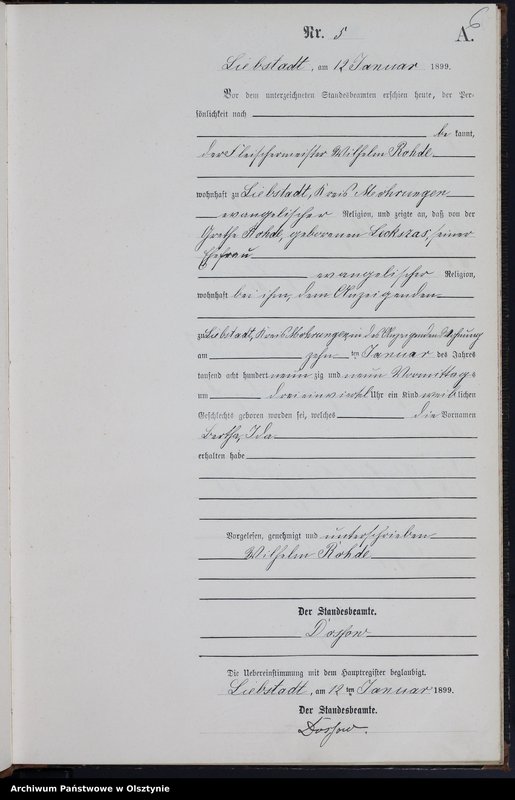 6
Nr. 5
A.
Liebstadt, am 12 Januar 1899.
Vor dem unterzeichneten Standesbeamten erschien heute, der Per-
sönlichkeit nach
be kannt,
der Fleischermeister Wilhelm Rohde
wohnhaft zu Liebstadt, Kreis Mohrungen
evangelischer Religion, und zeigte an, daß von der
Grethe Rohde, geborenen seiner
Ehefrau
evangelischer Religion,
wohnhaft bei ihm, dem Anzeigenden
zu Liebstadt, Kreis Mohrungen, in des Anzeigenden Wohnung
am zehn ten Januar des Jahres
tausend acht hundert neun zig und neun Vormittags
um dreieinviertel Uhr ein Kind weiblichen
Geschlechts geboren worden sei, welches die Vornamen
Bertha, Ida
erhalten habe
Vorgelesen, genehmigt und unterschrieben
Wilhelm Rohde
Der Standesbeamte.
Dossow
Die Uebereinstimmung mit dem Hauptregister beglaubigt.
Liebstadt, am 12 ten Januar 1899.
Der Standesbeamte.
Dossow.
Archiwum Państwowe w Olsztynie